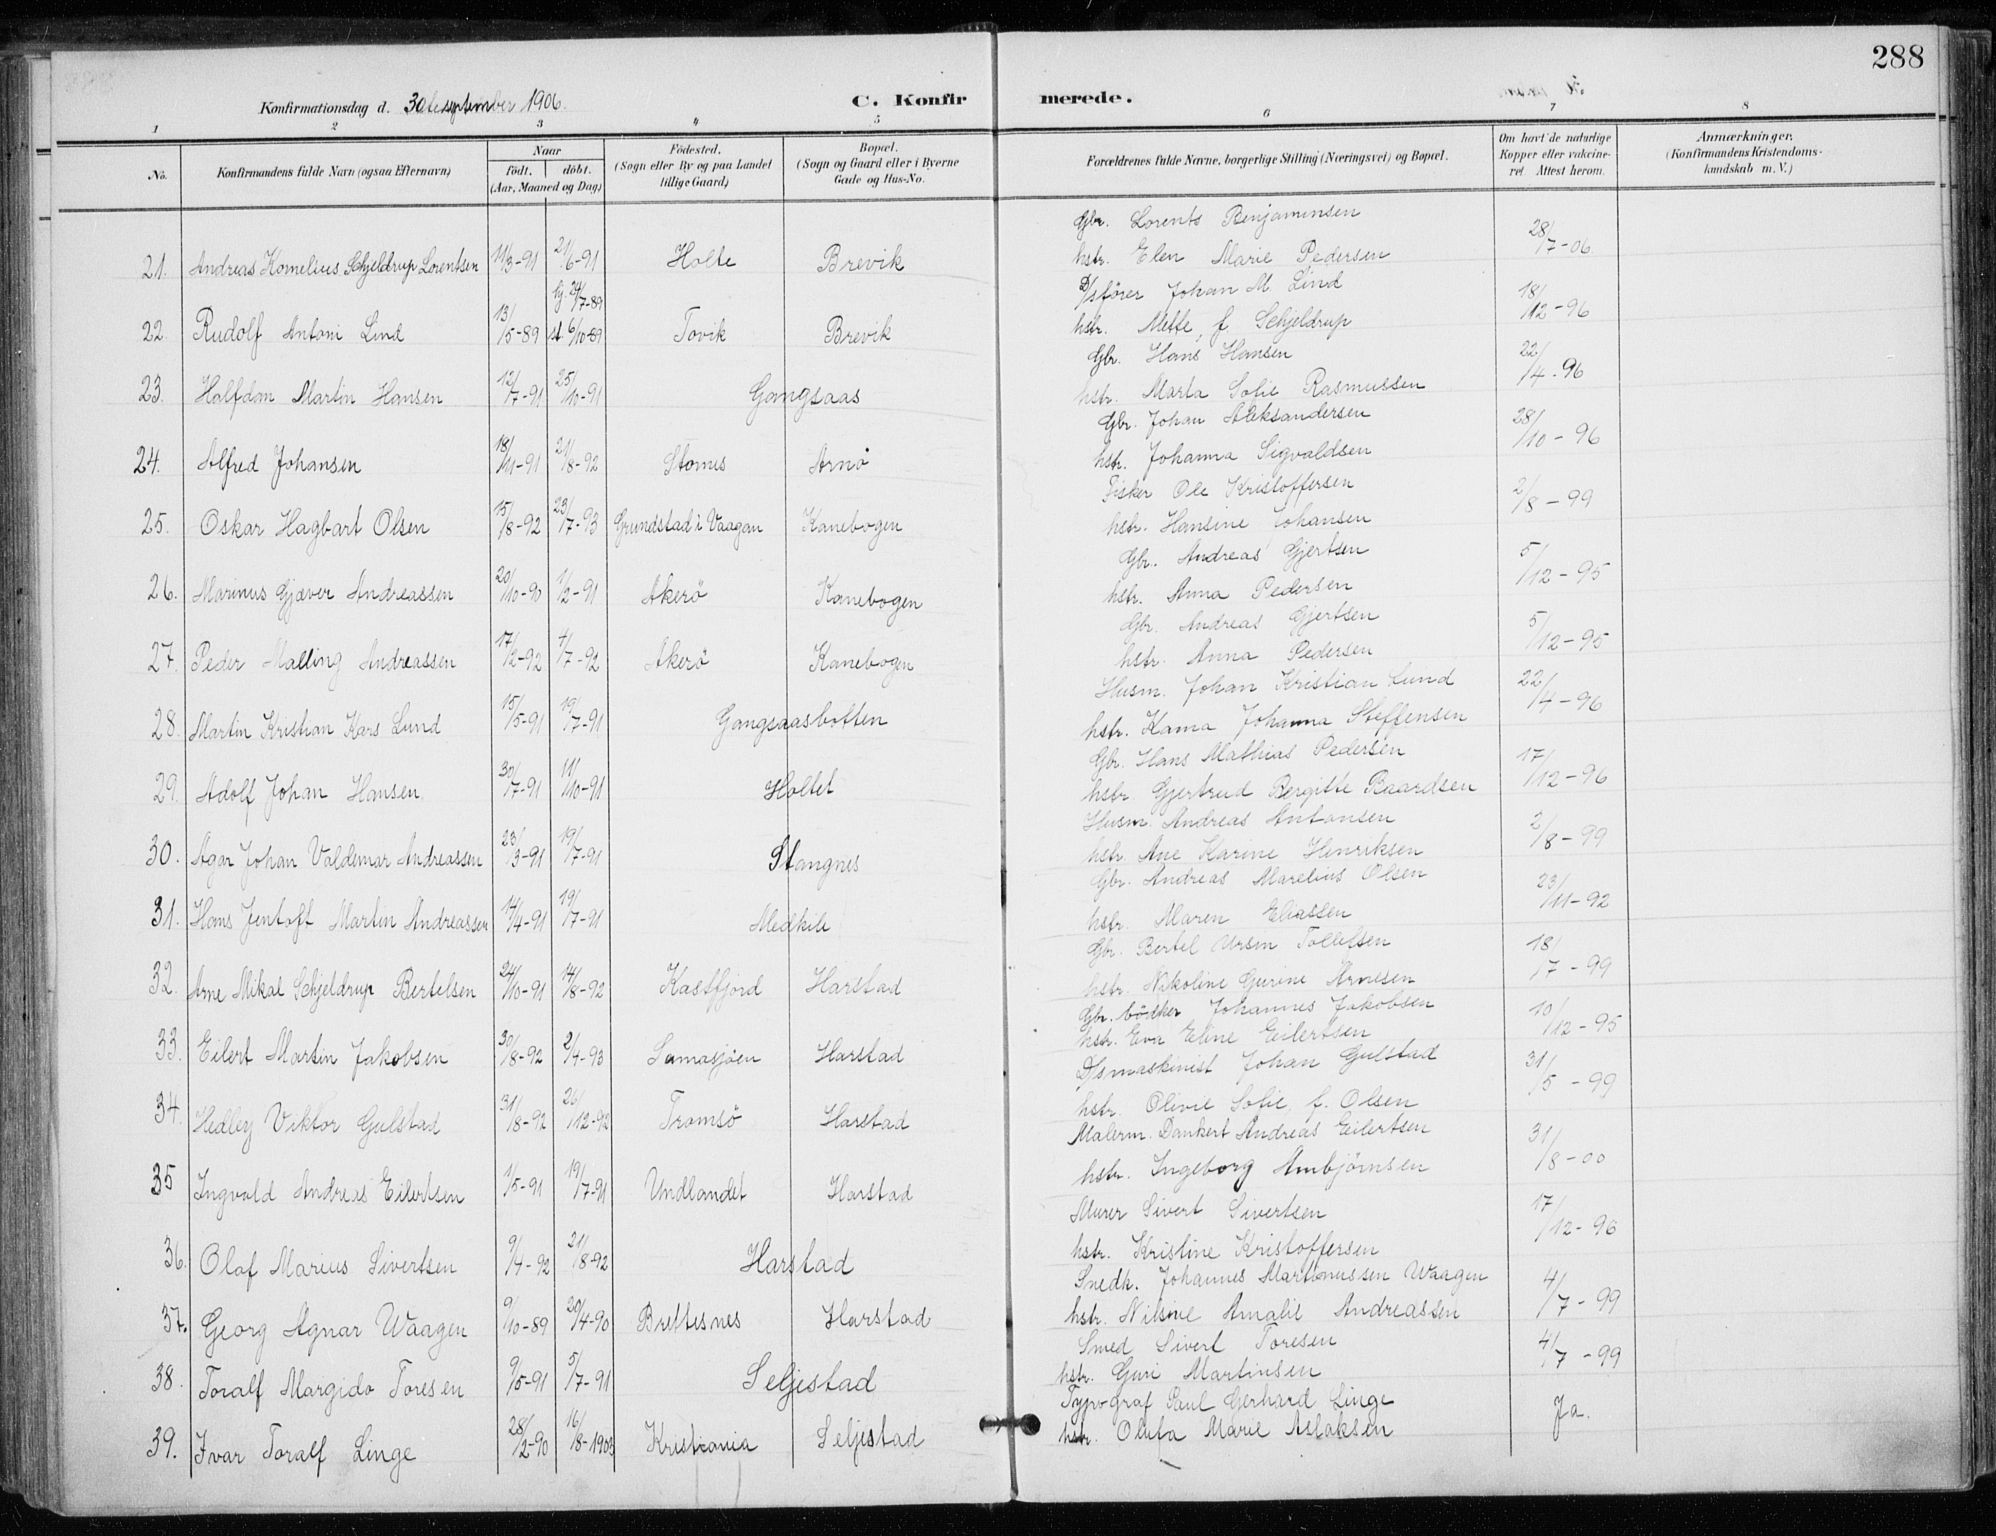 288
Konfirmationsdag d. 30te september 1906.
C. Konfirmerede.
1 2 3 4 5 6 7 8
No.
Konfirmandens fulde Navn (ogsaa Efternavn)
Naar
födt. döbt.
(Aar, Maaned og Dag)
Födested.
(Sogn eller By og paa Landet
tillige Gaard)
Bopæl.
(Sogn og Gaard eller i Byerne
Gade og Hus-No.
Forældrenes fulde Navne, borgerlige Stilling (Næringsvei) og Bopæl.
Om havt de naturlige
Kopper eller vakcine-
ret. Attest herom.
Anmærkninger.
(Konfirmandens Kristendoms-
kundskab m. V.)
Gbr. Lorents Benjaminsen
21. Andreas Kornelius Schjeldrup Lorentsen 11/3-91 21/6-91 Holte Brevik hstr. Elen Marie Pedersen 28/7-06
D/sfører Johan M. Lind
22 Rudolf Antoni Lind 13/5-89 hj. 24/7-89 st. 6/10-89 Tovik Brevik hstr. Mette, f. Schjeldrup 18/12-96
Gbr. Hans Hansen
23. Halfdan Martin Hansen 12/7-91 25/10-91 Gangsaas hstr. Marta Sofie Rasmussen 22/4-96
Gbr. Johan Aleksandersen
24. Alfred Johansen 18/11-91 21/8-92 Stornes Arnø hstr. Johanna Sigvaldsen 28/10-96
Fisker Ole Kristoffersen
25. Oskar Hagbart Olsen 15/8-92 23/7-93 Grundstad i Vaagan Kanebogen hstr. Hansine Johansen 2/8-99
Gbr. Andreas Gjertsen
26. Marinus Gjæver Andreassen 20/10-90 1/2-91 Akerö Kanebogen hstr. Anna Pedersen 5/12-95
Gbr. Andreas Gjertsen
27. Peder Malling Andreassen 17/2-92 4/7-92 Akerö Kanebogen hstr. Anna Pedersen 5/12-95
Husm. Johan Kristian Lund
28. Martin Kristian Kars Lund 15/5-91 19/7-91 Gangsaasbotten hstr. Hanna Johanna Steffensen 22/4-96
Gbr. Hans Mathias Pedersen
29. Adolf Johan Hansen 30/7-91 11/10-91 Holtet hstr. Gjertrud Bergitte Baardsen 17/12-96
Husm. Andreas Antonsen
30. Agar Johan Valdemar Andreassen 23/3-91 19/7-91 Stangnes hstr. Ane Karine Henriksen 2/8-99
Gbr. Andreas Marelius Olsen
31. Hans Jentoft Martin Andreassen 14/4-91 19/7-91 Medkile hstr. Maren Eliassen 23/11-92
Gbr. Bertel Ursin Tollefsen
32. Arne Mikal Schjeldrup Bertelsen 24/10-91 14/8-92 Kastfjord Harstad hstr. Nikoline Gurine Arnesen 18/7-99
Gbr. bödker Johannes Jakobsen
33. Eilert Martin Jakobsen 30/8-92 2/4-93 Samasjöen Harstad hstr. Eva Eline Eilertsen 10/12-95
D/smaskinist Johan Gulstad
34. Hedley Viktor Gulstad 31/8-92 26/12-92 Tromsö Harstad hstr. Olivie Sofie, f. Olsen 31/5-99
Malerm. Dankert Andreas Eilertsen
35 Ingvald Andreas Eilertsen 1/5-91 19/7-91 Undlandet Harstad hstr. Ingeborg Ambjörnsen 31/8-00
Murer Sivert Sivertsen
36. Olaf Marius Sivertsen 9/4-92 21/8-92 Harstad hstr. Kristine Kristoffersen 17/12-96
Snedk. Johannes Martinussen Waagen
37. Georg Agnar Waagen 9/10-89 20/4-90 Brettesnes Harstad hstr. Nilsine Amalie Andreassen 4/7-99
Smed Sivert Toresen
38. Toralf Margido Toresen 9/5-91 5/7-91 Seljestad hstr. Guri Martinsen 4/7-99
Typograf Paul Gerhard Linge
39. Ivar Toralf Linge 28/2-90 16/8-1903 Kristiania Seljestad hstr. Olufa Marie Aslaksen Ja.